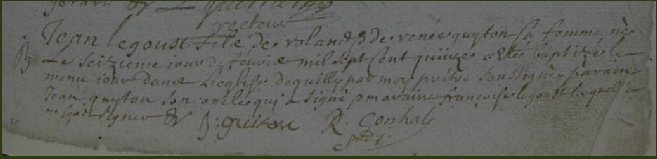 recteur
Jean legoust fils de roland & de renée guyton sa femme né
Le seizieme jour de feuvrie mil sept cent quinze a été baptizé le
meme jour dans L'eglisse de quilly par moy pretre Soussigné parain
Jean guyton son oncle qui a signé & maraine françoise legoust laquelle
ne sçait signer &
J: guiton R: Conhal
ptre